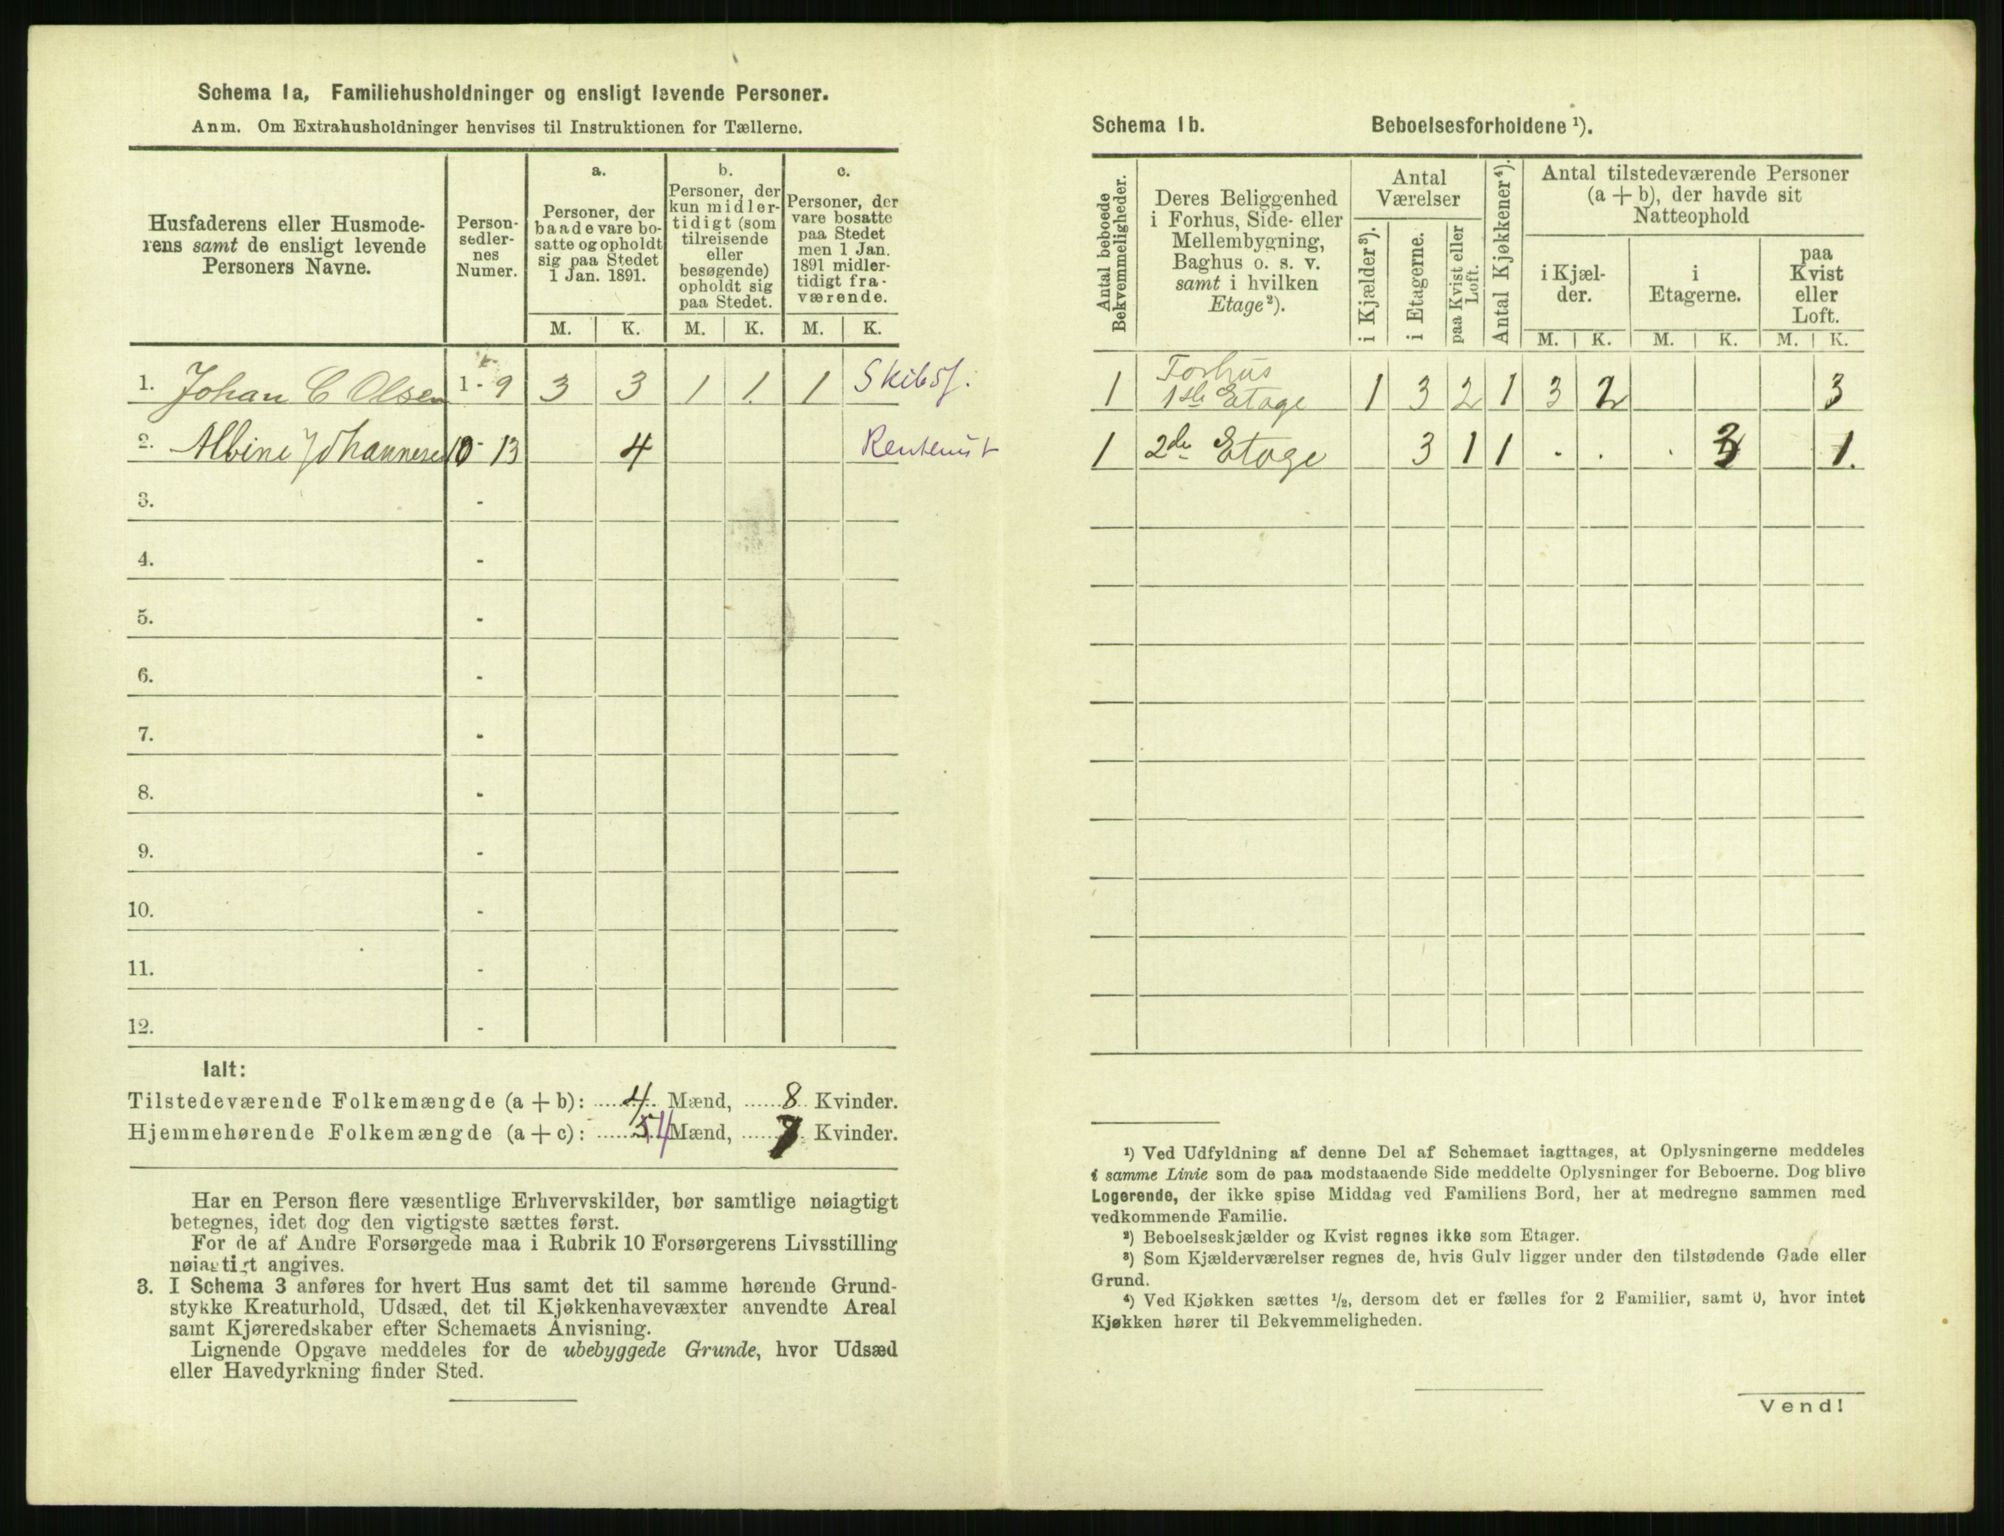 Schema 1a, Familiehusholdninger og ensligt levende Personer.
Anm. Om Extrahusholdninger henvises til Instruktionen for Tællerne.
Husfaderens eller Husmode-
rens samt de ensligt levende
Personers Navne.
Person-
sedler-
nes
Numer.
a.
Personer, der
baade vare bo-
satte og opholdt
sig paa Stedet
1 Jan. 1891.
b.
Personer, der
kun midler-
tidigt (som
tilreisende
eller
besøgende)
opholdt sig
paa Stedet.
c.
Personer, der
vare bosatte
paa Stedet
men 1 Jan.
1891 midler-
tidigt fra-
værende.
M. K. M. K. M. K.
1. Johan C Olsen 1 - 9 3 3 1 1. 1 Skibsf.
2. Albine Johannesen 10 - 13 4
3. -
4. -
5. -
6. -
7. -
8. -
9. -
10. -
11. -
12. -
Ialt:
Tilstedeværende Folkemængde (a + b): 4 Mænd, 8 Kvinder.
Hjemmehørende Folkemængde (a + c): 5 4 Mænd, 7 Kvinder.
Har en Person flere væsentlige Erhvervskilder, bør samtlige nøiagtigt
betegnes, idet dog den vigtigste sættes først.
For de af Andre Forsørgede maa i Rubrik 10 Forsørgerens Livsstilling
nøiagtigt angives.
3. I Schema 3 anføres for hvert Hus samt det til samme hørende Grund-
stykke Kreaturhold, Udsæd, det til Kjøkkenhavevæxter anvendte Areal
samt Kjøreredskaber efter Schemaets Anvisning.
Lignende Opgave meddeles for de ubebyggede Grunde, hvor Udsæd
eller Havedyrkning finder Sted.
Schema 1b. Beboelsesforholdene ¹).
Antal beboede
Bekvemmeligheder.
Deres Beliggenhed
i Forhus, Side- eller
Mellembygning,
Baghus o. s. v.
samt i hvilken
Etage²).
Antal
Værelser
i Kjælder³).
i Etagerne.
paa Kvist eller
Loft.
Antal Kjøkkener⁴).
Antal tilstedeværende Personer
(a + b), der havde sit
Natteophold
i Kjæl-
der.
i
Etagerne.
paa
Kvist
eller
Loft.
M. K. M. K. M. K.
1 Forhus
1ste Etage 1 3 2 1 3 2 3
1 2den Etage 3 1 1 . . . 3 1.
¹) Ved Udfyldning af denne Del af Schemaet iagttages, at Oplysningerne meddeles
i samme Linie som de paa modstaaende Side meddelte Oplysninger for Beboerne. Dog blive
Logerende, der ikke spise Middag ved Familiens Bord, her at medregne sammen med
vedkommende Familie.
²) Beboelseskjælder og Kvist regnes ikke som Etager.
³) Som Kjælderværelser regnes de, hvis Gulv ligger under den tilstødende Gade eller
Grund.
⁴) Ved Kjøkken sættes ½, dersom det er fælles for 2 Familier, samt 0, hvor intet
Kjøkken hører til Bekvemmeligheden.
Vend!